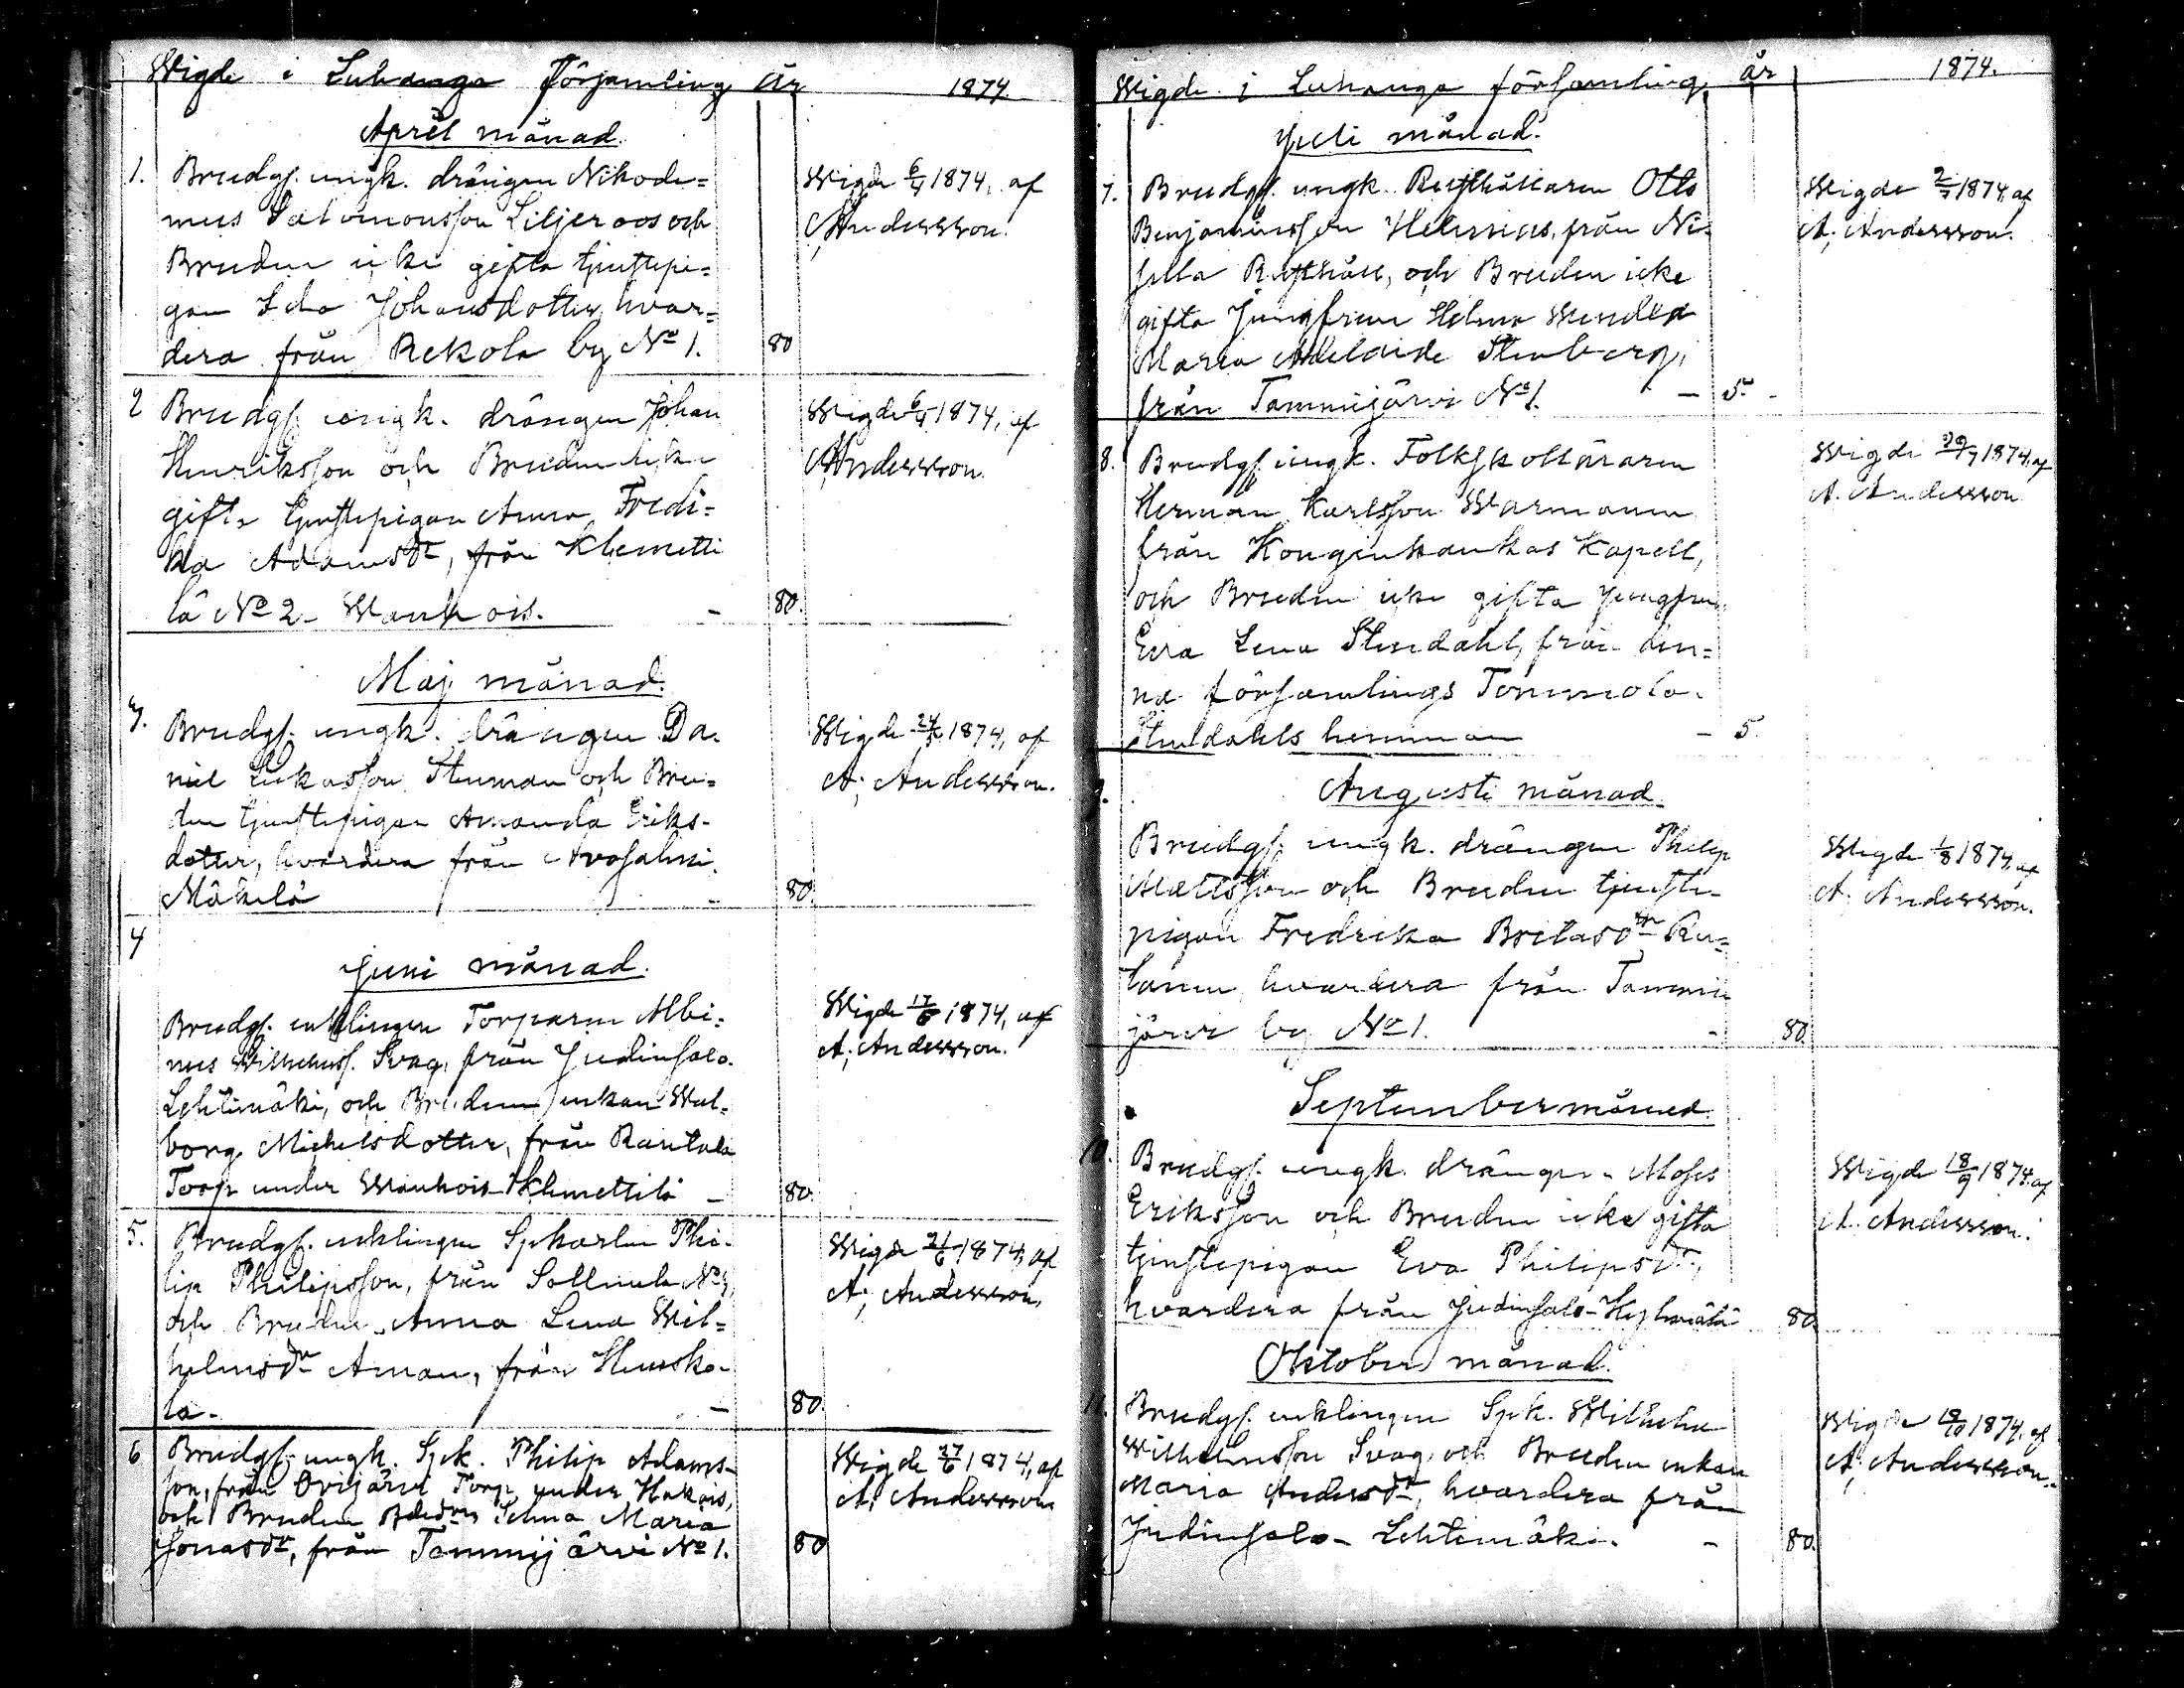 Wigde i Luhanga Församling år 1874
April månad.
1. Brudgs. ungk. drängen Nikode=
mus Salomonsson Liljeroos och
Bruden icke gifta tjenstepi=
gan Ida Johansdotter, hvar=
dera från Rekola by No 1. 80
Wigde 6/4 1874, af
A; Andersson.
2 Brudgs. ungk. drängen Johan
Henriksson och Bruden icke
gifta tjenstepigan Anna Fredi=
ka Adamsdr, från Klemetti
lä No 2 - Wanhois. - 80.
Wigde 6/4 1874, af
A; Andersson.
Maj månad.
3. Brudgs. ungk. drängen Da=
niel Lukasson Stenman och Bru=
den tjenstepigan Amanda Eriks=
dotter, hvardera från Avosalmi.
Mäkelä - 80.
Wigde 24/5 1874, af
A; Andersson.
4
Juni månad.
Brudgs. enklingen Torparen Albi=
nus Wilhelmss. Svag, från Judinsalo.
Lehtimäki, och Bruden enkan Wal=
borg Michelsdotter, från Rantala
Torp under Wanhois-Klemettilä - 80.
Wigde 17/6 1874, af
A; Andersson.
5. Brudgs. enklingen Spkarlen Phi=
lip Philipsson, från
och Bruden Anna Lena Wil=
helmsdr Aman, från
la. - 80.
Wigde 21/6 1874, af
A; Andersson.
6 Brudgs. ungk. Spk. Philip Adams=
son, från Orijärvi Torp under Hakois,
och Bruden Selma Maria
Jonasdr, från Tammijärvi No 1. 80
Wigde 27/6 1874, af
A; Andersson
Wigde i Luhanga församling, år 1874.
Juli månad.
7. Brudgs. ungk. Rusthållaren Otto
Benjaminsson Helenius, från Ni=
silla Rusthåll, och Bruden icke
gifta Jungfrun Helena Wendla
Maria Adelaide Stenberg,
från Tammijärvi No 1. - 5. -
Wigde 2/7 1874, af
A; Andersson.
8. Brudgs. ungk. Folkskolläraren
Herman Karlsson Warmanen
från Konginkankas Kapell,
och Bruden icke gifta Jungfrun
Eva Lena Stendahl, från den=
na församlings Tommola.
Stendahls hemman - 5.
Wigde 29/7 1874, af
A. Andersson
9. Augusti månad.
Brudgs. ungk. drängen Philip
Mattsson och Bruden tjenste=
pigan Fredrika Britasdr Ru=
tanen, hvardera från Tammi
järvi by No 1. - 80.
Wigde 1/8 1874, af
A; Andersson.
September månad.
10. Brudgs. ungk. drängen Moses
Eriksson och Bruden icke gifta
tjenstepigan Eva Philipsdr,
hvardera från Judinsalo-Kylmälä 80.
Wigde 18/9 1874, af
A. Andersson.
Oktober månad.
11. Brudgs. enklingen Spk. Wilhelm
Wilhelmsson Svag, och Bruden enkan
Maria Andersdr, hvardera från
Judinsalo - Lehtimäki. - 80.
Wigde 18/10 1874, af
A; Andersson.